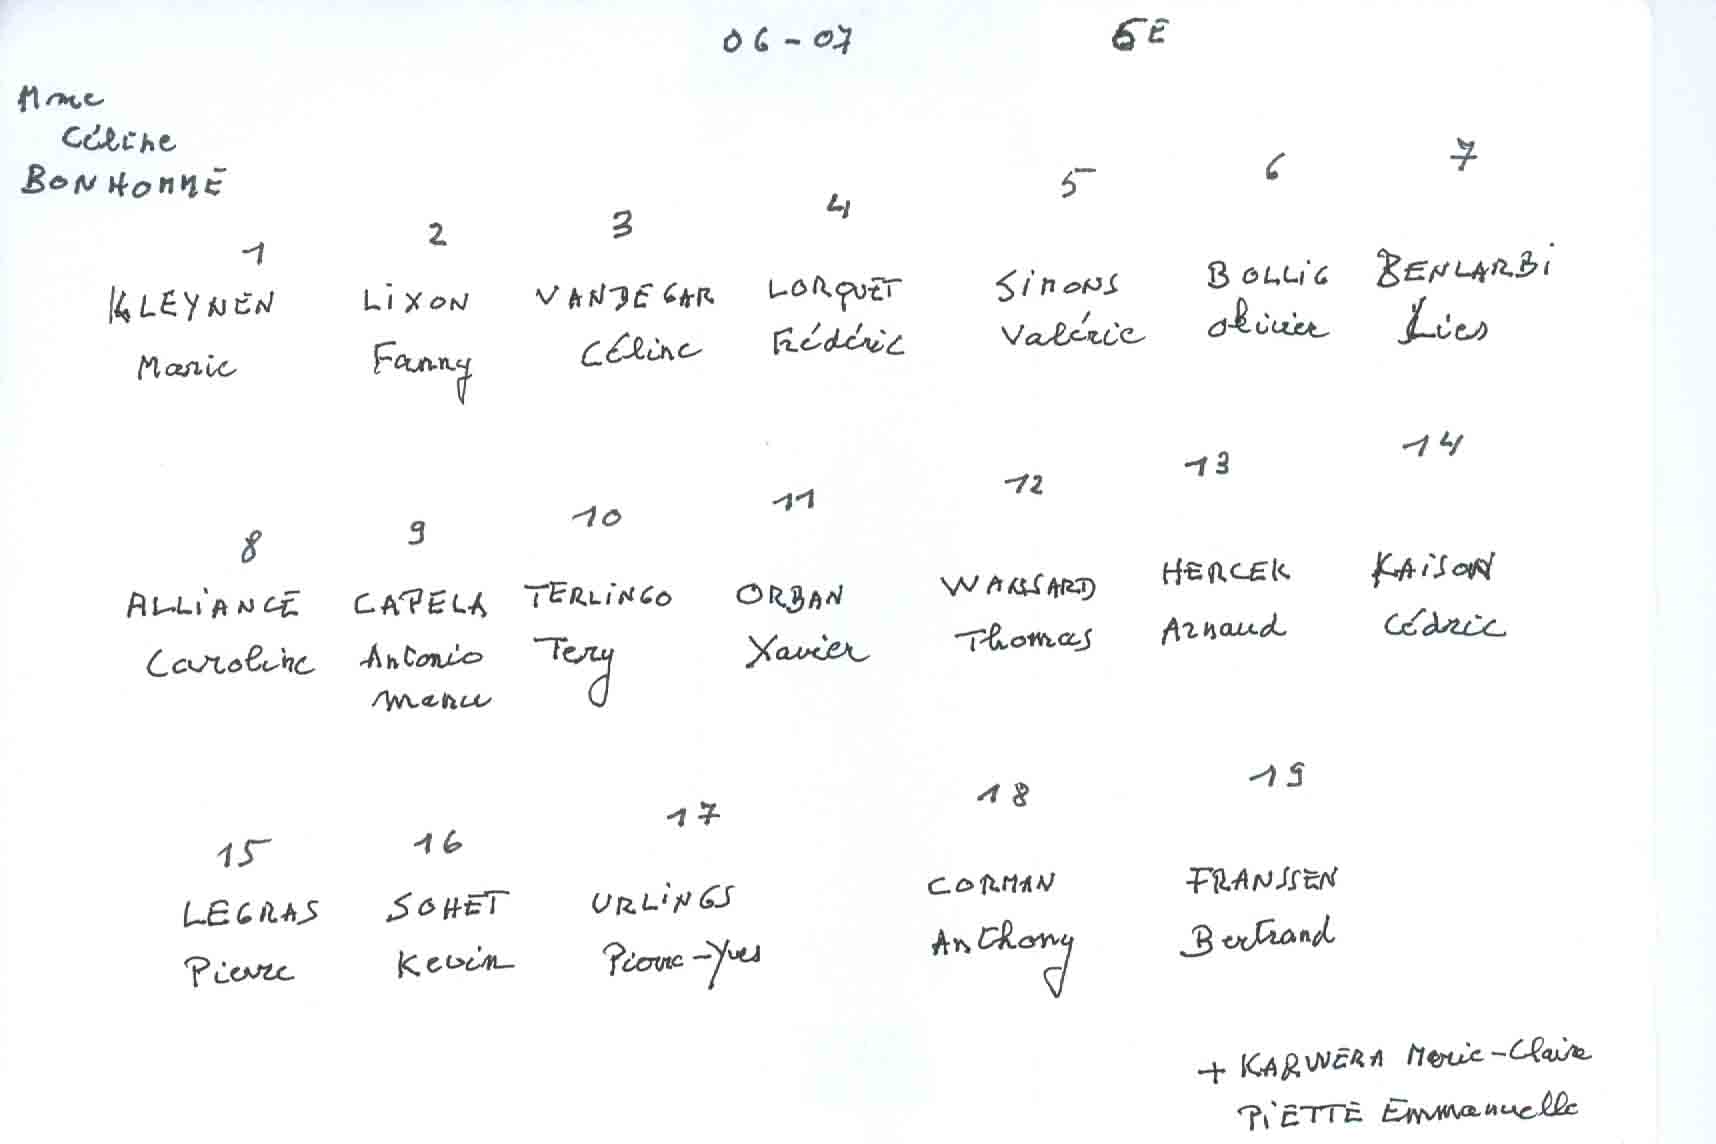 06-07 6E
Mme
Céline
BONHOMME
1 2 3 4 5 6 7
KLEYNEN LIXON VANDEGAR LORQUET SIMONS BOLLIG BENLARBI
Marie Fanny Céline Frédéric Valérie Olivier Lies
8 9 10 11 12 13 14
ALLIANCE CAPELA TERLINGO ORBAN HERCEK KAISON
Caroline Antonio Tery Xavier Thomas Arnaud Cédric
Manu
15 16 17 18 19
LEGRAS SOHET URLINGS CORMAN FRANSSEN
Pierre Kevin Pierre-Yves Anthony Bertrand
+ KARWERA Marie-Claire
PIETTE Emmanuelle